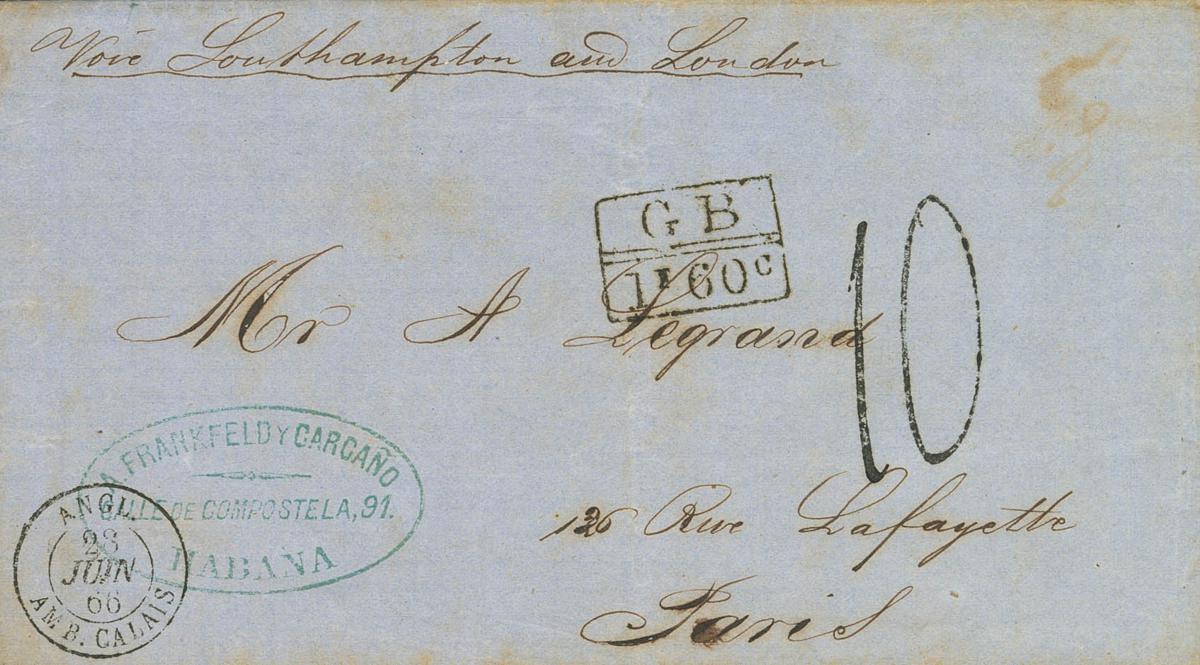 Voie Southampton and London
G B
1F 60c
10
Mr A Legrand
A FRANKFELD Y CARCAÑO
CALLE DE COMPOSTELA, 91.
HABANA
126 Rue Lafayette
Paris
ANGL.
23
JUIN
66
AMB. CALAIS